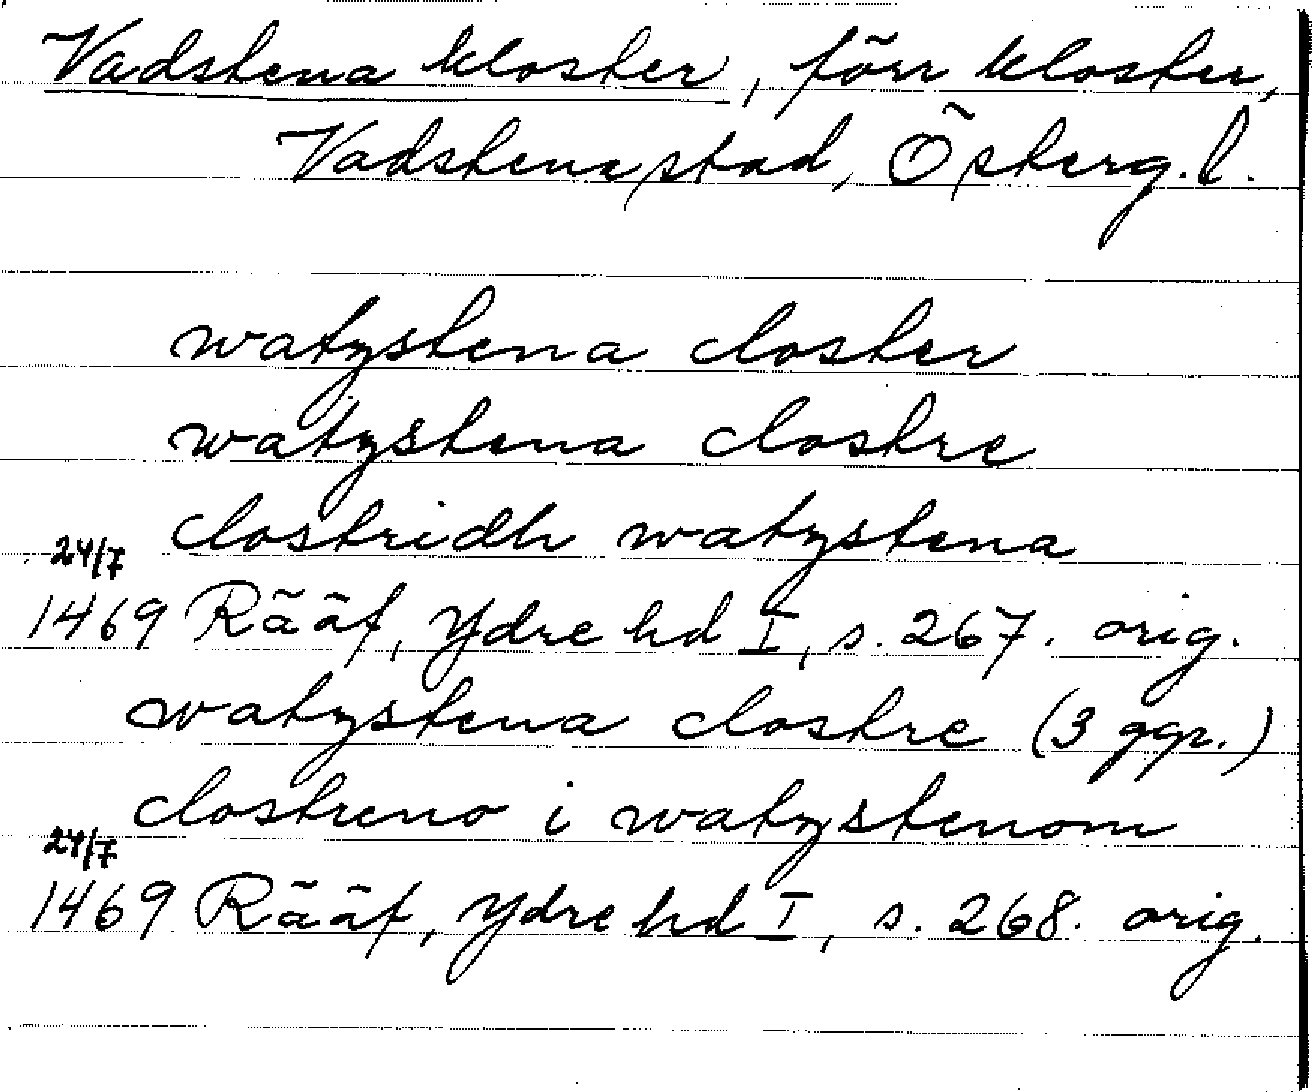 Vadstena kloster, förr kloster,
Vadstena stad, Östergl.
watzstena closter
watzstena clostre
clostridh watzstena
24/7
1469 Rääf, Ydre hd I, s. 267. orig.
watzstena clostre (3 ggr.)
clostreno i watzstenom
24/7
1469 Rääf, Ydre hd I, s. 268. orig.